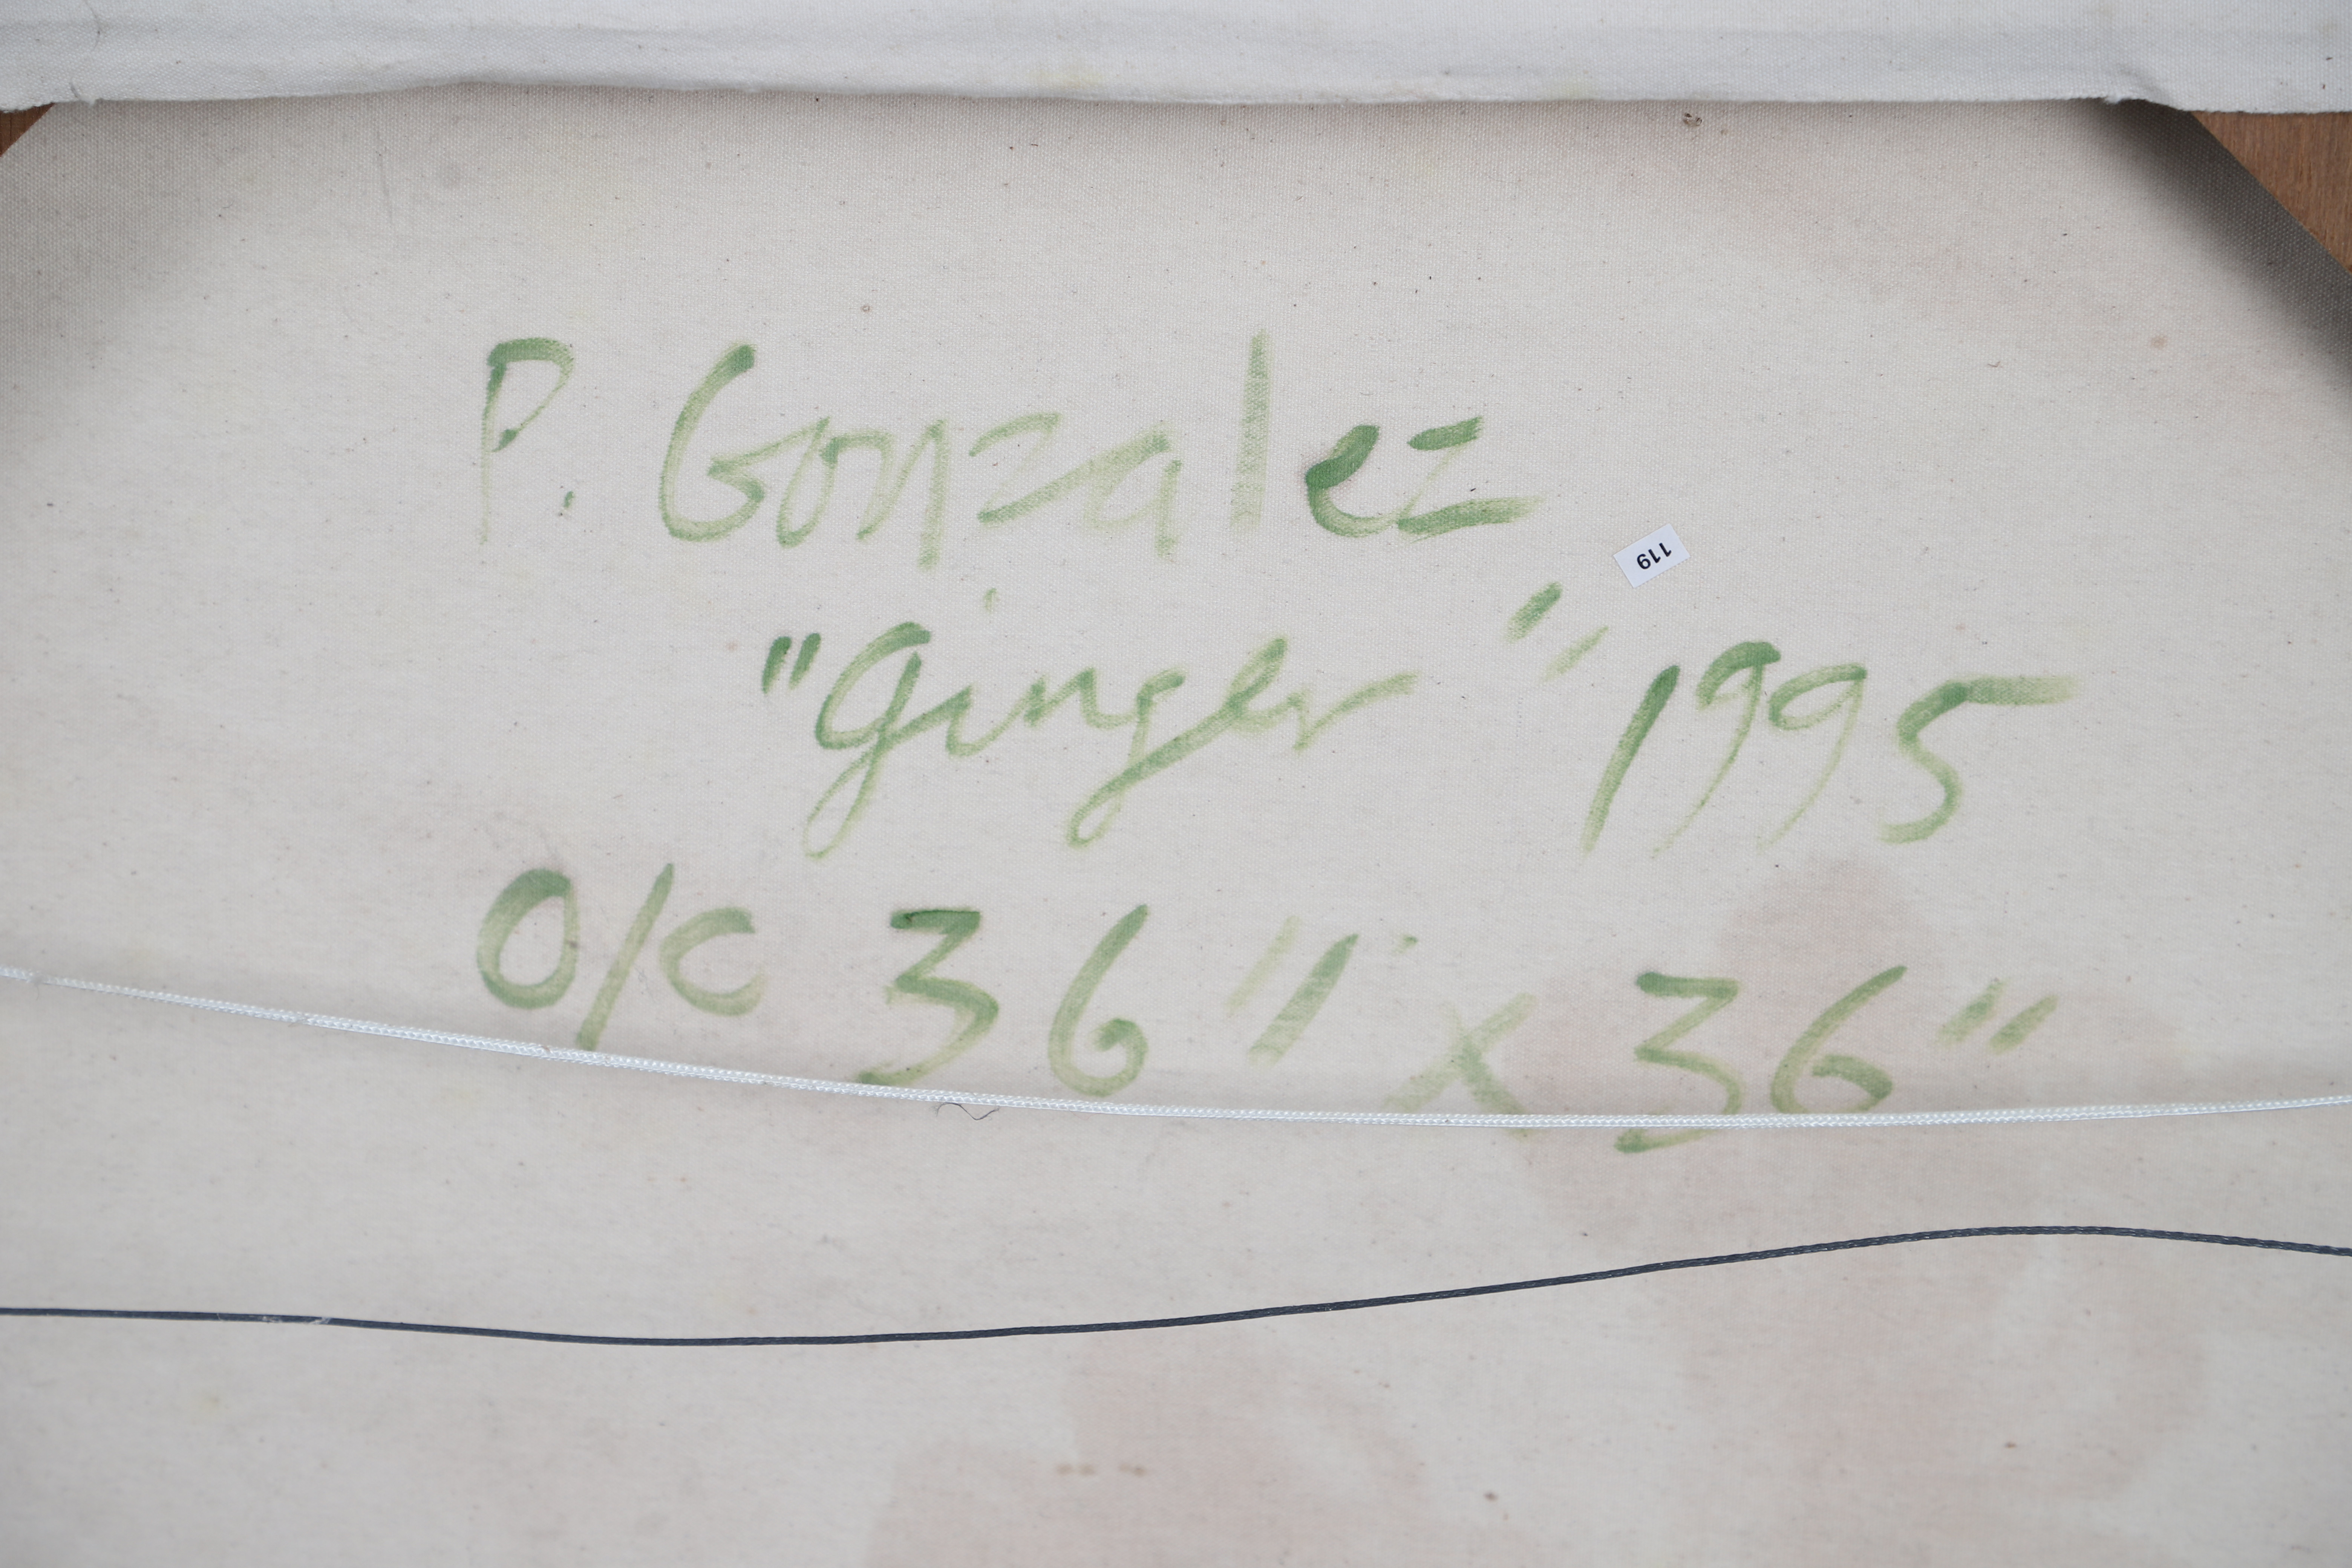 P. Gonzalez
119
"Ginger" 1995
O/C 36" x 36"